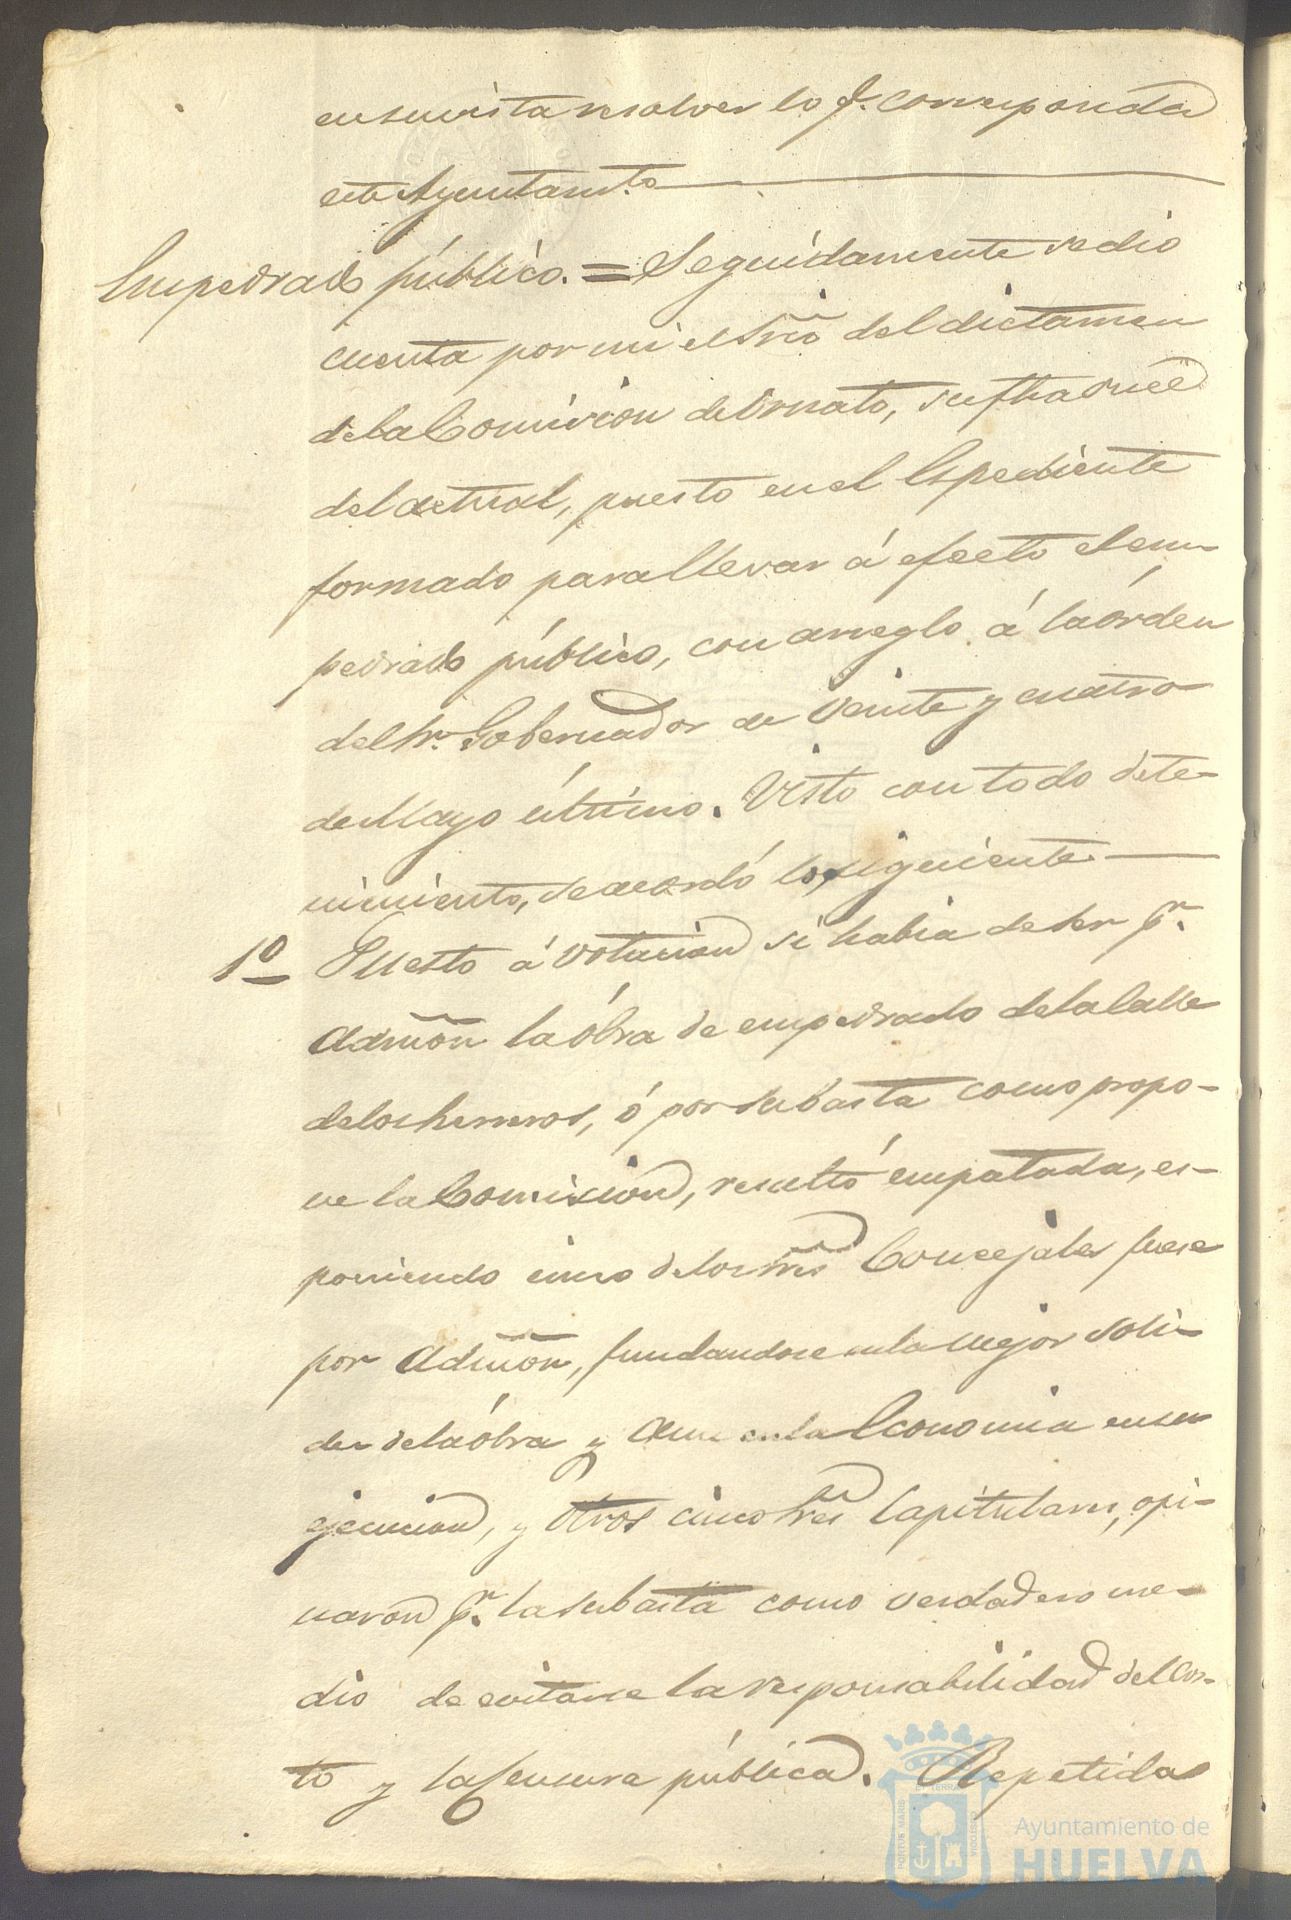 en su vista resolver lo q.e corresponda
este Ayuntam.to
Empedrado público. = Seguidamente se dió
cuenta por mi el Srio del dictamen
de la Comision de Ornato, su fha once
del actual, puesto en el Espediente
formado para llevar á efecto el em-
pedrado público, con arreglo á la órden
del Sr. Gobernador de veinte y cuatro
de Mayo último. Visto con todo dete-
nimiento, se acordó lo siguiente
1º Puesto á votacion si habia de ser p.r
Admõn la óbra de empedrado de la Calle
de los herreros, ó por subasta como propo-
ne la Comision, resultó empatada, es-
poniendo cinco de los Sres Concejales fuese
por Admõn, fundandose en la mejor soli-
des de la óbra y aun en la Economia en su
ejecucion, y otros cinco Sres Capitulares, opi-
naron p.r la subasta como verdadero me-
dio de evitarse la responsabilidad del Cos-
to y la Censura pública. Repetida
Ayuntamiento de
HUELVA
PORTUS MARIS
ET TERRAE